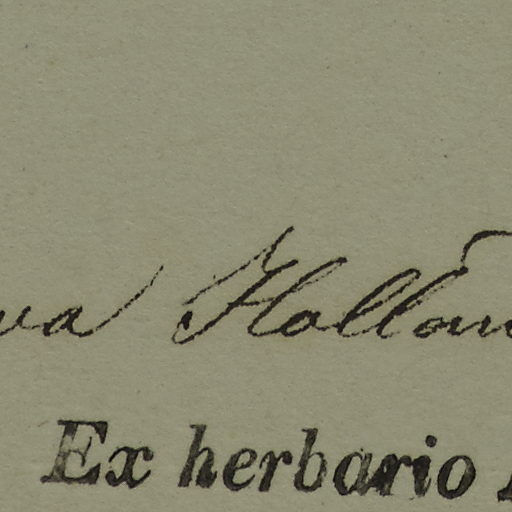 va Hollan
Ex herbario